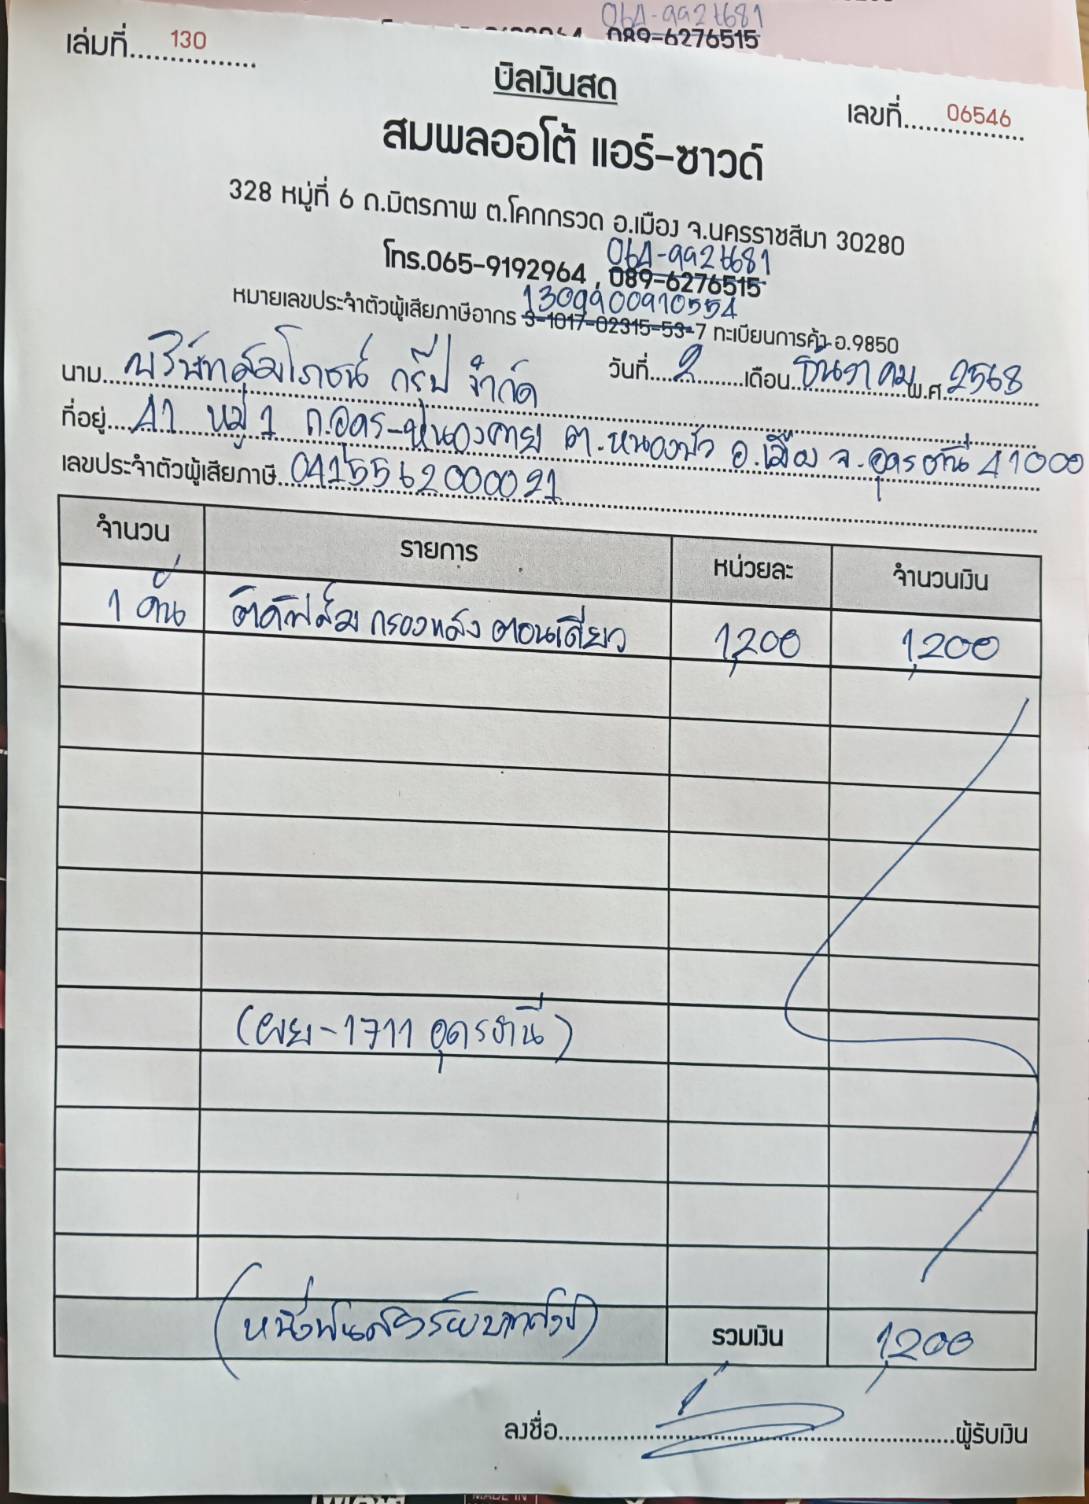 064-9926681
089-6276515
เล่มที่ 130
บิลเงินสด
เลขที่ 06546
สมพลออโต้ แอร์-ซาวด์
328 หมู่ที่ 6 ถ.มิตรภาพ ต.โคกกรวด อ.เมือง จ.นครราชสีมา 30280
064-9926681
โทร.065-9192964 , 089-6276515
1309900910554
หมายเลขประจำตัวผู้เสียภาษีอากร 3-1017-02315-53-7 ทะเบียนการค้า อ.9850
วันที่ 2 เดือน ธันวาคม พ.ศ. 2568
นาม บริษัทสุมโภชน์ กรุ๊ป จำกัด
ที่อยู่ 41 หมู่ 1 ถ.อุดร-หนองคาย ต.หนองบัว อ.เมือง จ.อุดรธานี 41000
เลขประจำตัวผู้เสียภาษี 0415562000021
จำนวน รายการ หน่วยละ จำนวนเงิน
1 คัน ติดฟิล์ม กรองหลัง ตอนเดียว 1,200 1,200
(ผย-1711 อุดรธานี)
(หนึ่งพันสองร้อยบาทถ้วน) รวมเงิน 1,200
ลงชื่อ ผู้รับเงิน
MADE IN